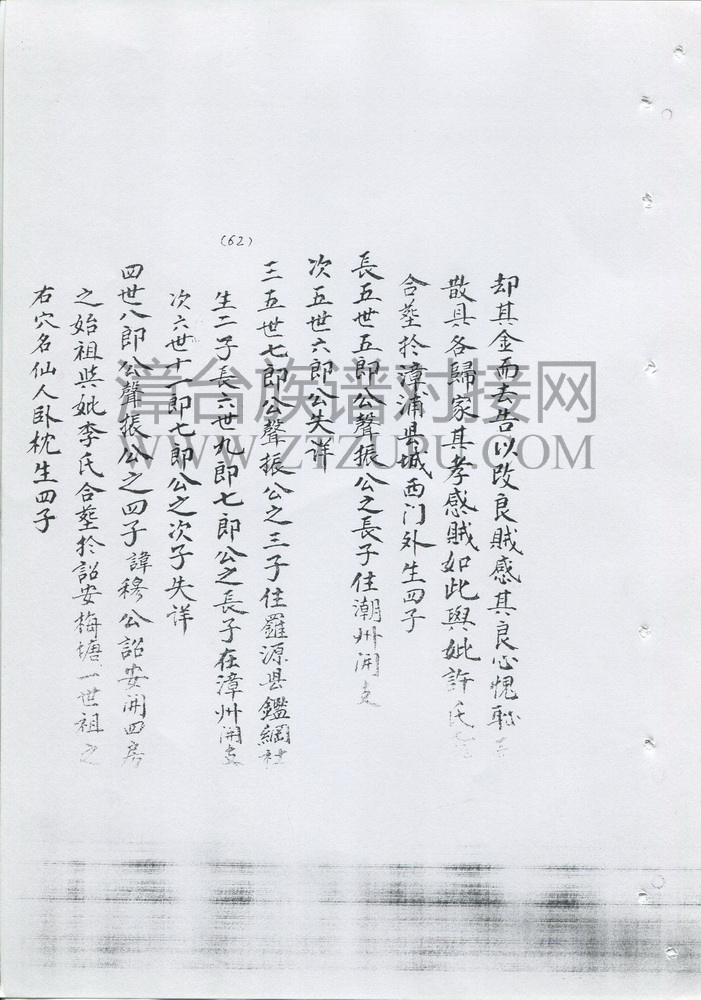 (62)
却其金而去告以改良贼感其良心愧耻
散具各歸家其孝感贼如此與妣許氏
合塟於漳浦县城西门外生四子
長五世五郎公聲振公之長子住潮州開支
次五世六郎公失详
三五世七郎公聲振公之三子住羅源县鑑綱社
生二子長六世九郎七郎公之長子在漳州開支
次六世十一郎七郎公之次子失详
四世八郎公聲振公之四子諱穆公詔安開四房
之始祖與妣李氏合塟於詔安梅塘一世祖之
右穴名仙人卧枕生四子
漳台族谱对接网
WWW.ZTZUPU.COM